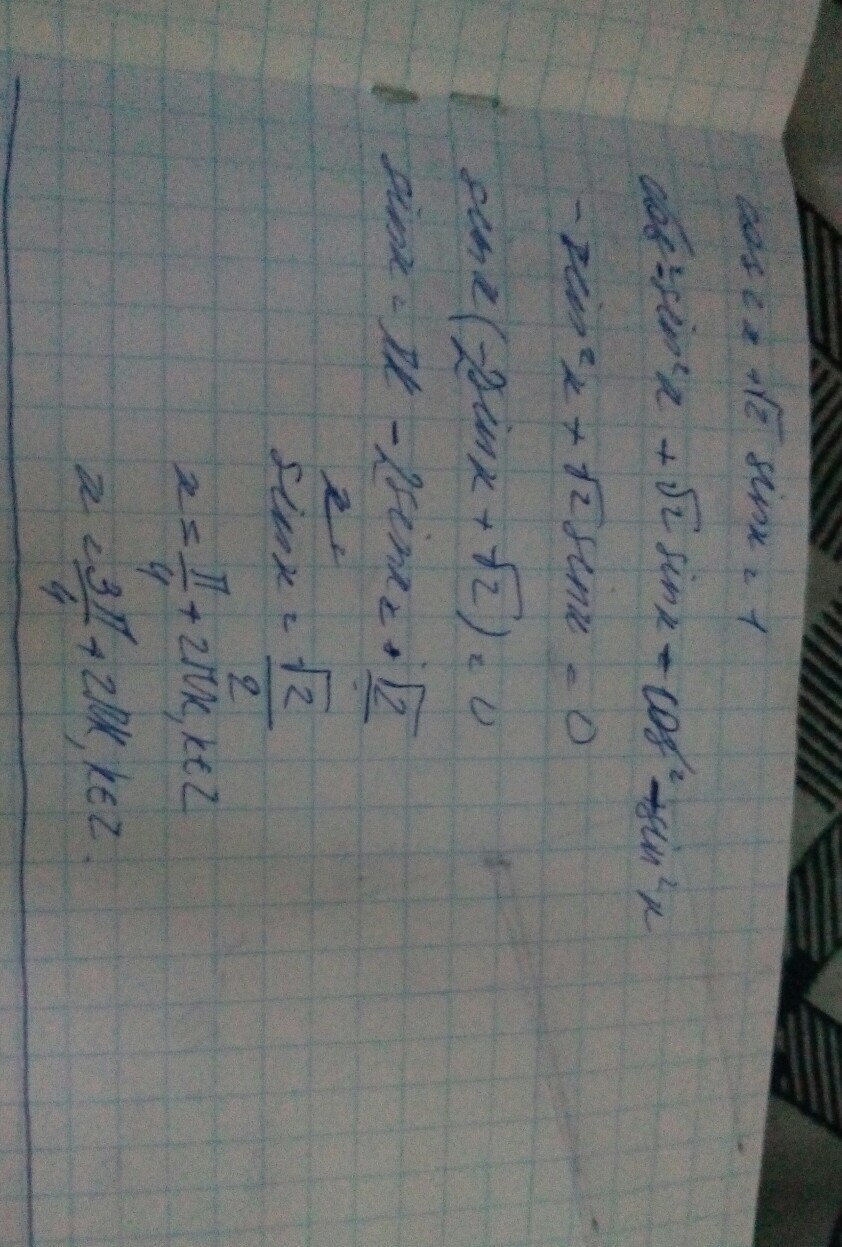 cos 2x + √2 sinx = 1
cos² - sin²x + √2 sinx = cos² + sin²x
-2sin²x + √2 sinx = 0
sinx(-2sinx + √2) = 0
sinx = πk - 2sinx = √2
x =
sinx = √2/2
x = π/4 + 2πk, k∈Z
x = 3π/4 + 2πk, k∈Z.